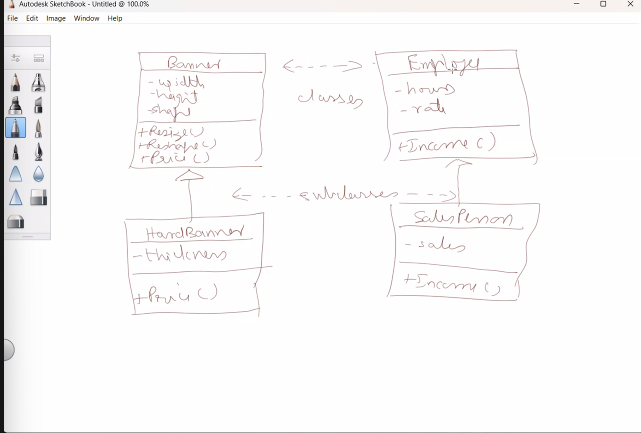 Autodesk SketchBook - Untitled @ 100.0%
File Edit Image Window Help
Banner
- width
- height
- shape
+Resize()
+Reshape()
+Price()
classes
Employee
- hours
- rate
+Income()
subclasses
HardBanner
- thickness
+Price()
SalesPerson
- sales
+Income()